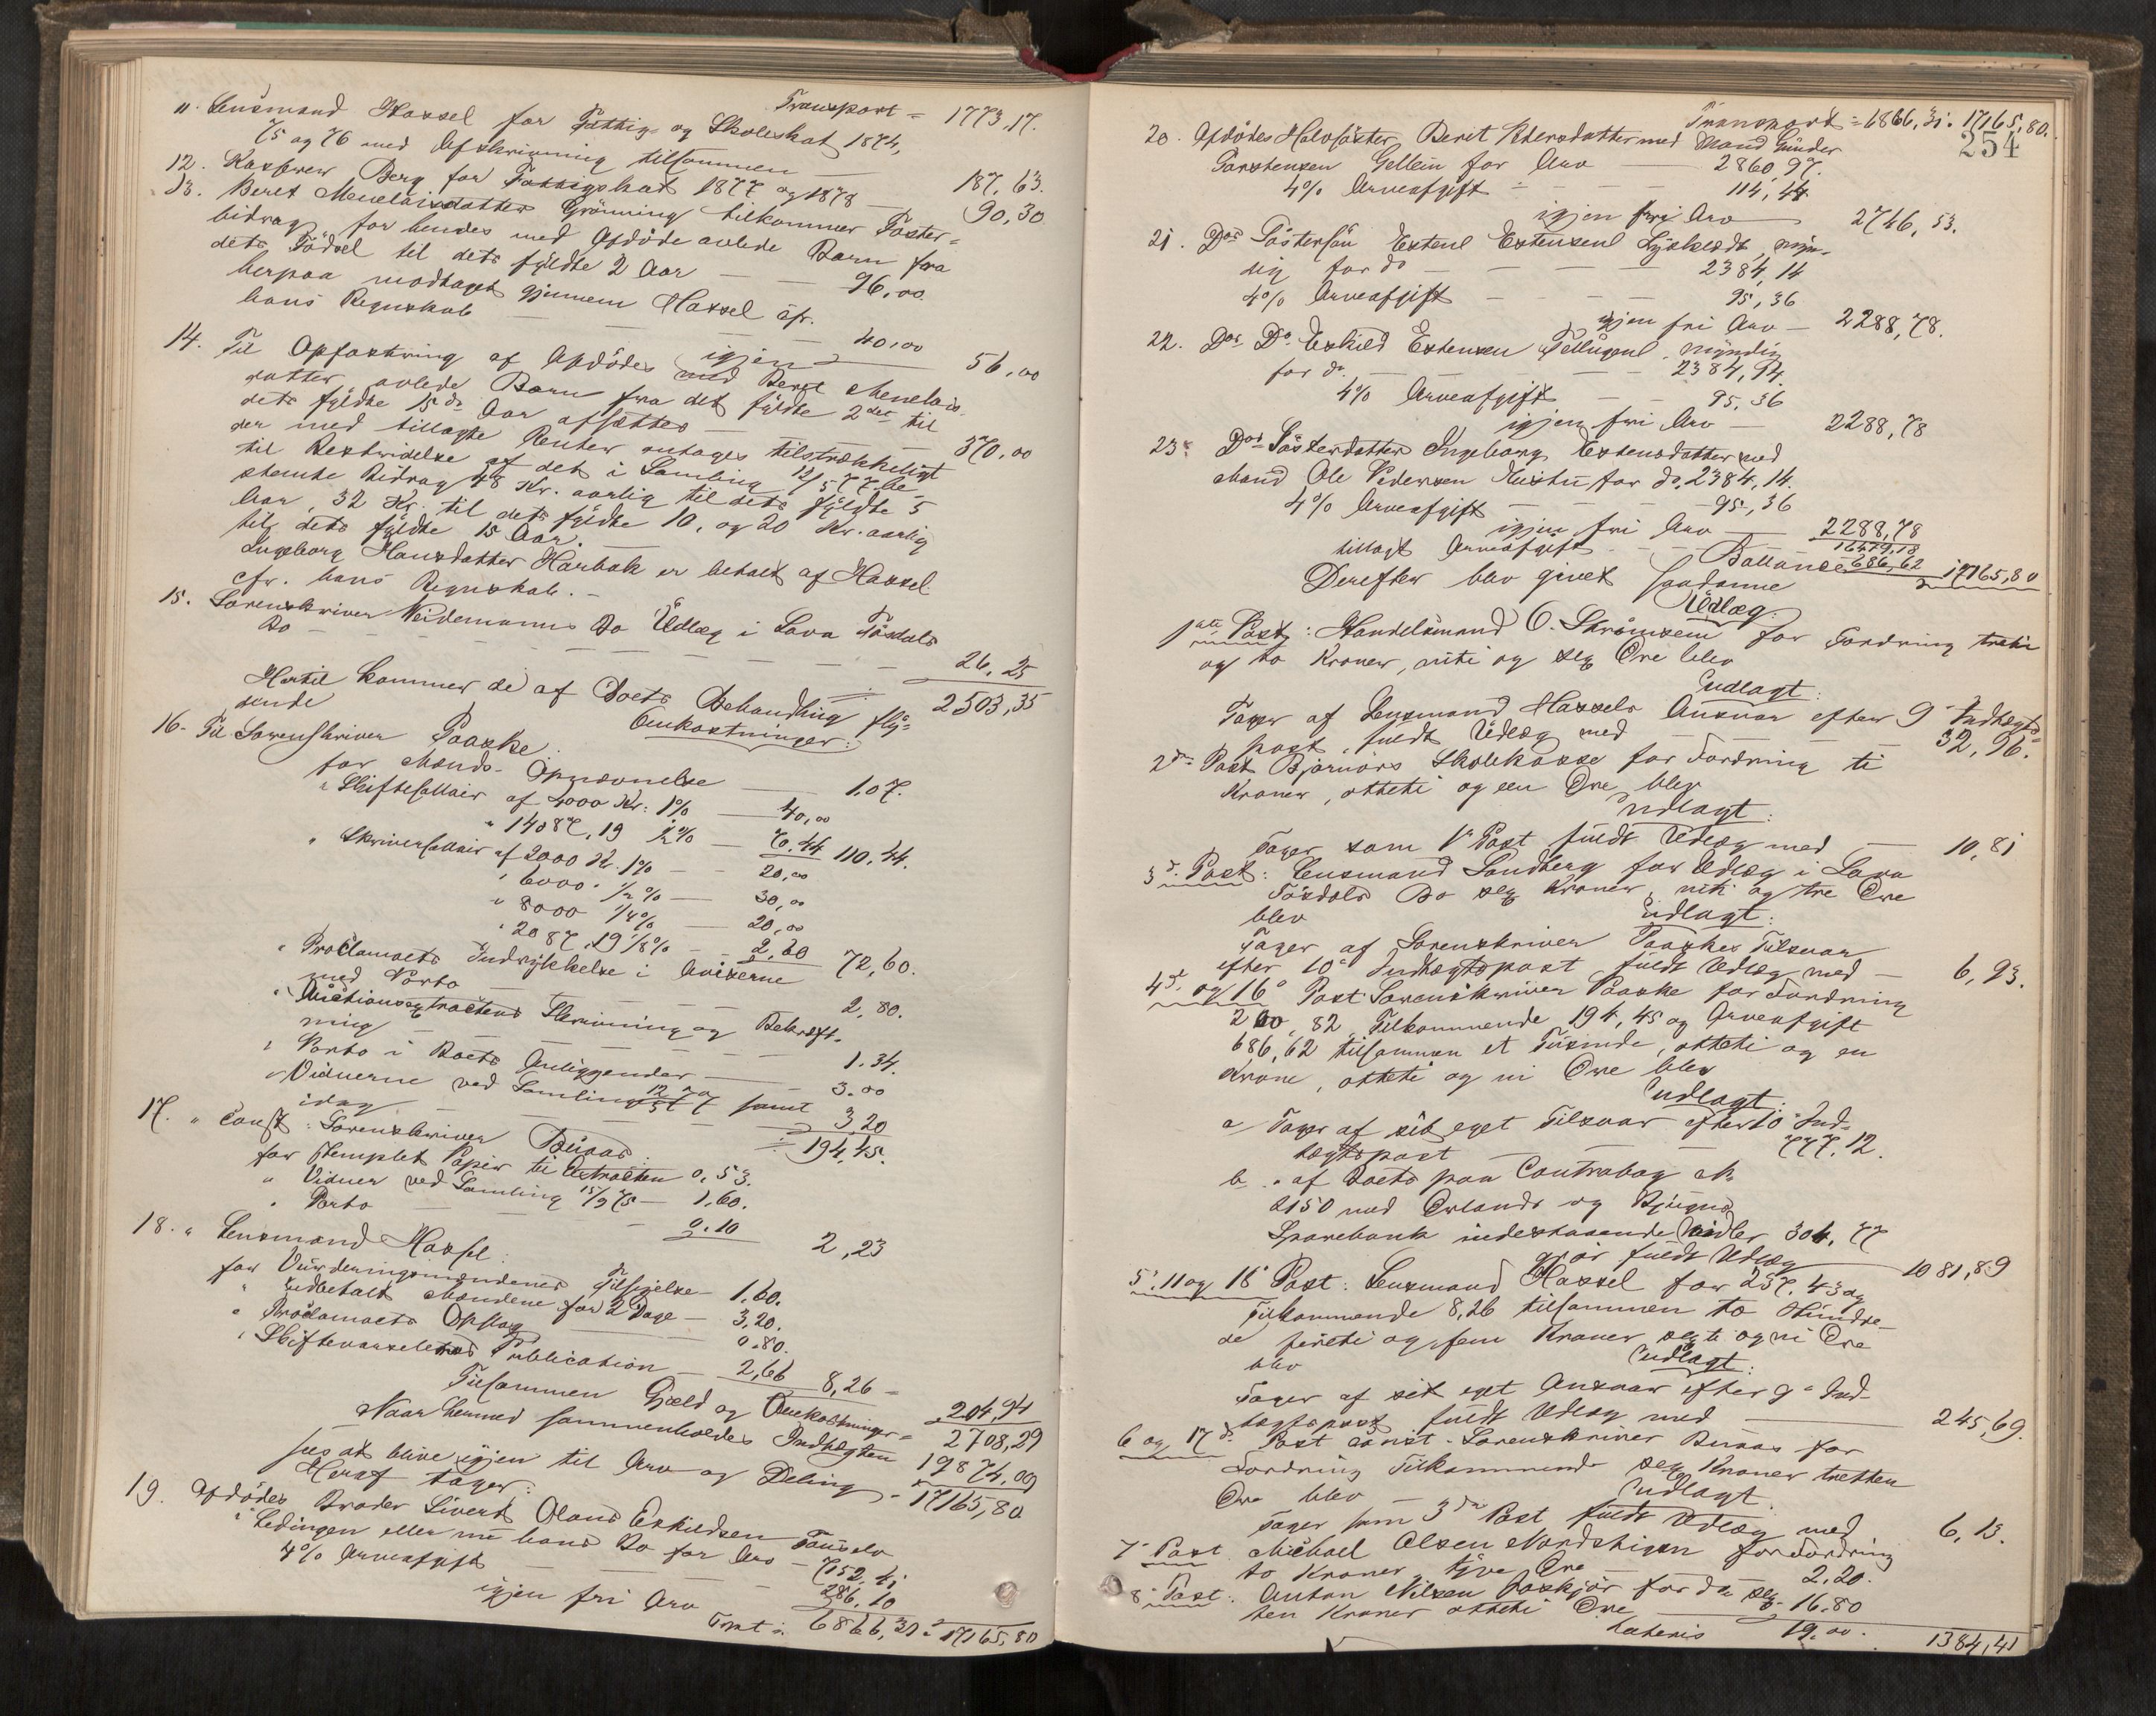 Transport = 1773,17.
11. Lensmand Hassel for Fattig- og Skoleskat 1874,
75 og 76 med Afskrivning tilsammen — 187,63.
12. Kasserer Berg for Fattigskat 1877 og 1878 — 90,30
13. Beret Menelaisdatter Grönning tilkommer Foster-
bidrag for hendes med Afdöde avlede Barn fra
dets Födsel til dets fyldte 2 Aar — 96,00
herpaa modtaget gjennem Hassel cfr.
hans Regnskab — 40,00
igjen 56,00
14. Til Opfostring af Afdödes med Beret Menelais-
datter avlede Barn fra det fyldte 2det til
dets fyldte 15de Aar afsættes — 370,00
der med tillagte Renter antages tilstrækkeligt
til Bestridelse af det i Samling 12/5 77 be-
stemte Bidrag 48 Kr. aarlig til dets fyldte 5
Aar, 32 Kr. til dets fyldte 10, og 20 Kr. aarlig
til dets fyldte 15 Aar.
Ingeborg Hansdatter Harbak er betalt af Hassel
cfr. hans Regnskab. -
15. Sorenskriver Weidemanns Bo Udlæg i Lava Fösdals
Bo — 26,25
2503,35
Hertil kommer de af Boets Behandling fly-
dende
Omkostninger:
16. Til Sorenskriver Paaske
for Mænds-Opnævnelse — 1.07.
" Skiftesallair af 4000 Kr: 1% — 40,00
" 14087,19 ½% — 70.44 110,44.
" Skriversallair af 2000 Kr. 1% — 20,00
" 6000. 1/2% — 30,00
" 8000 1/4% — 20,00
" 2087,19 1/8% — 2,60 72,60.
" Proclamaets Indrykkelse i Aviserne
med Porto — 2,80.
" Auctionsextractens Skrivning og Bekræft-
ning — 1.34.
" Porto i Boets Anliggender — 3.00
" Vidnerne ved Samling 12/5 77 samt
idag — 3,20
194,45.
17. " Const: Sorenskriver Buaas:
for stemplet Papir til Extracten 0,53.
" Vidner ved Samling 15/9 75 — 1,60.
" Porto — 0.10 2,23
18. " Lensmand Hassel:
for Vurderingsmændenes Tilsigelse 1.60.
" Udbetalt Mændene for 2 Dage — 3,20.
" Proclamaets Opslag 0.80.
" Skiftevarselets Publication — 2,66 8,26 -
204,94
Tilsammen Gjæld og Omkostninger = 2708,29
Naar hermed sammenholdes Indtægten 19874,09
sees at blive igjen til Arv og Deling = 17165,80
Heraf tager:
19. Afdödes Broder Sivert Olaus Eskildsen
Ledingen eller nu hans Bo for Arv — 7152,41
4% Arveafgift — 286,10
igjen fri Arv
Trpt: 6866,31 = 17165,80
254
Transport = 6866,31. 17165,80.
20. Afdödes Halvsöster Berit Pedersdatter med Mand Gunder
Torstensen Gellein for Arv — 2860,97.
4% Arveafgift — 114,44
igjen fri Arv — 2746,53.
21. Dos Söstersön Esten Estensen Lysklædt, myn-
dig for do — 2384,14
4% Arveafgift — 95,36
igjen fri Arv — 2288,78.
22. Dos Do Eskild Estensen, myndig
for do — 2384,14.
4% Arveafgift — 95,36
igjen fri Arv — 2288,78
23. Dos Sösterdatter Ingeborg Estensdatter med
Mand Ole Pedersen for do. 2384,14.
4% Arveafgift — 95,36
igjen fri Arv — 2288,78
16479,18
tillagt Arveafgift — 686,62
Ballance 17165,80
Derefter blev givet saadanne
Udlæg:
1ste Post: Handelsmand O. Skrömsem for Fordring treti
og to Kroner, niti og sex Öre blev
udlagt:
Tager af Lensmand Hassels Ansvar efter 9. Indtægts-
post, fuldt Udlæg med — 32,96.
2den Post Bjørnörs Skolekasse for Fordring ti
Kroner, otteti og een Öre blev
udlagt:
Tager som 1e Post fuldt Udlæg med — 10,81
3d. Post: Lensmand Sandberg for Udlæg i Lava
Fösdals Bo sex Kroner, niti og tre Öre
blev udlagt:
Tager af Sorenskriver Paaskes Tilsvar
efter 10de Indtægtspost fuldt Udlæg med — 6,93.
4de og 16de Post: Sorenskriver Paaske for Fordring
200,82, Tilkommende 194,45 og Arveafgift
686,62 tilsammen et Tusinde, otteti og en
Krone, otteti og ni Öre blev
udlagt:
a Tager af sit eget Tilsvar efter 10 Ind-
tægtspost — 777.12.
b " af Boets paa Contrabog No
2150 med Örlands og Bjugns
Sparebank indestaaende Midler 304,77
gjör fuldt Udlæg 1081,89
5, 11 og 18 Post: Lensmand Hassel for 237.43 og
Tilkommende 8,26 tilsammen to Hundre-
de fireti og fem Kroner sexti og ni Öre
blev udlagt:
Tager af sit eget Ansvar efter 9de Ind-
tægtspost fuldt Udlæg med — 245,69.
6 og 17de Post const. Sorenskriver Buaas for
Fordring Tilkommende sex Kroner tretten
Öre blev — udlagt.
Tager som 3die Post fuldt Udlæg med 6,13.
7 Post Michael Olsen Nordskigen for Fordring
to Kroner, tyve Öre — 2,20.
8 Post: Anton Nilsen for do sex-
ten Kroner otteti Öre — 16.80
Lateris 19,00. 1384,41